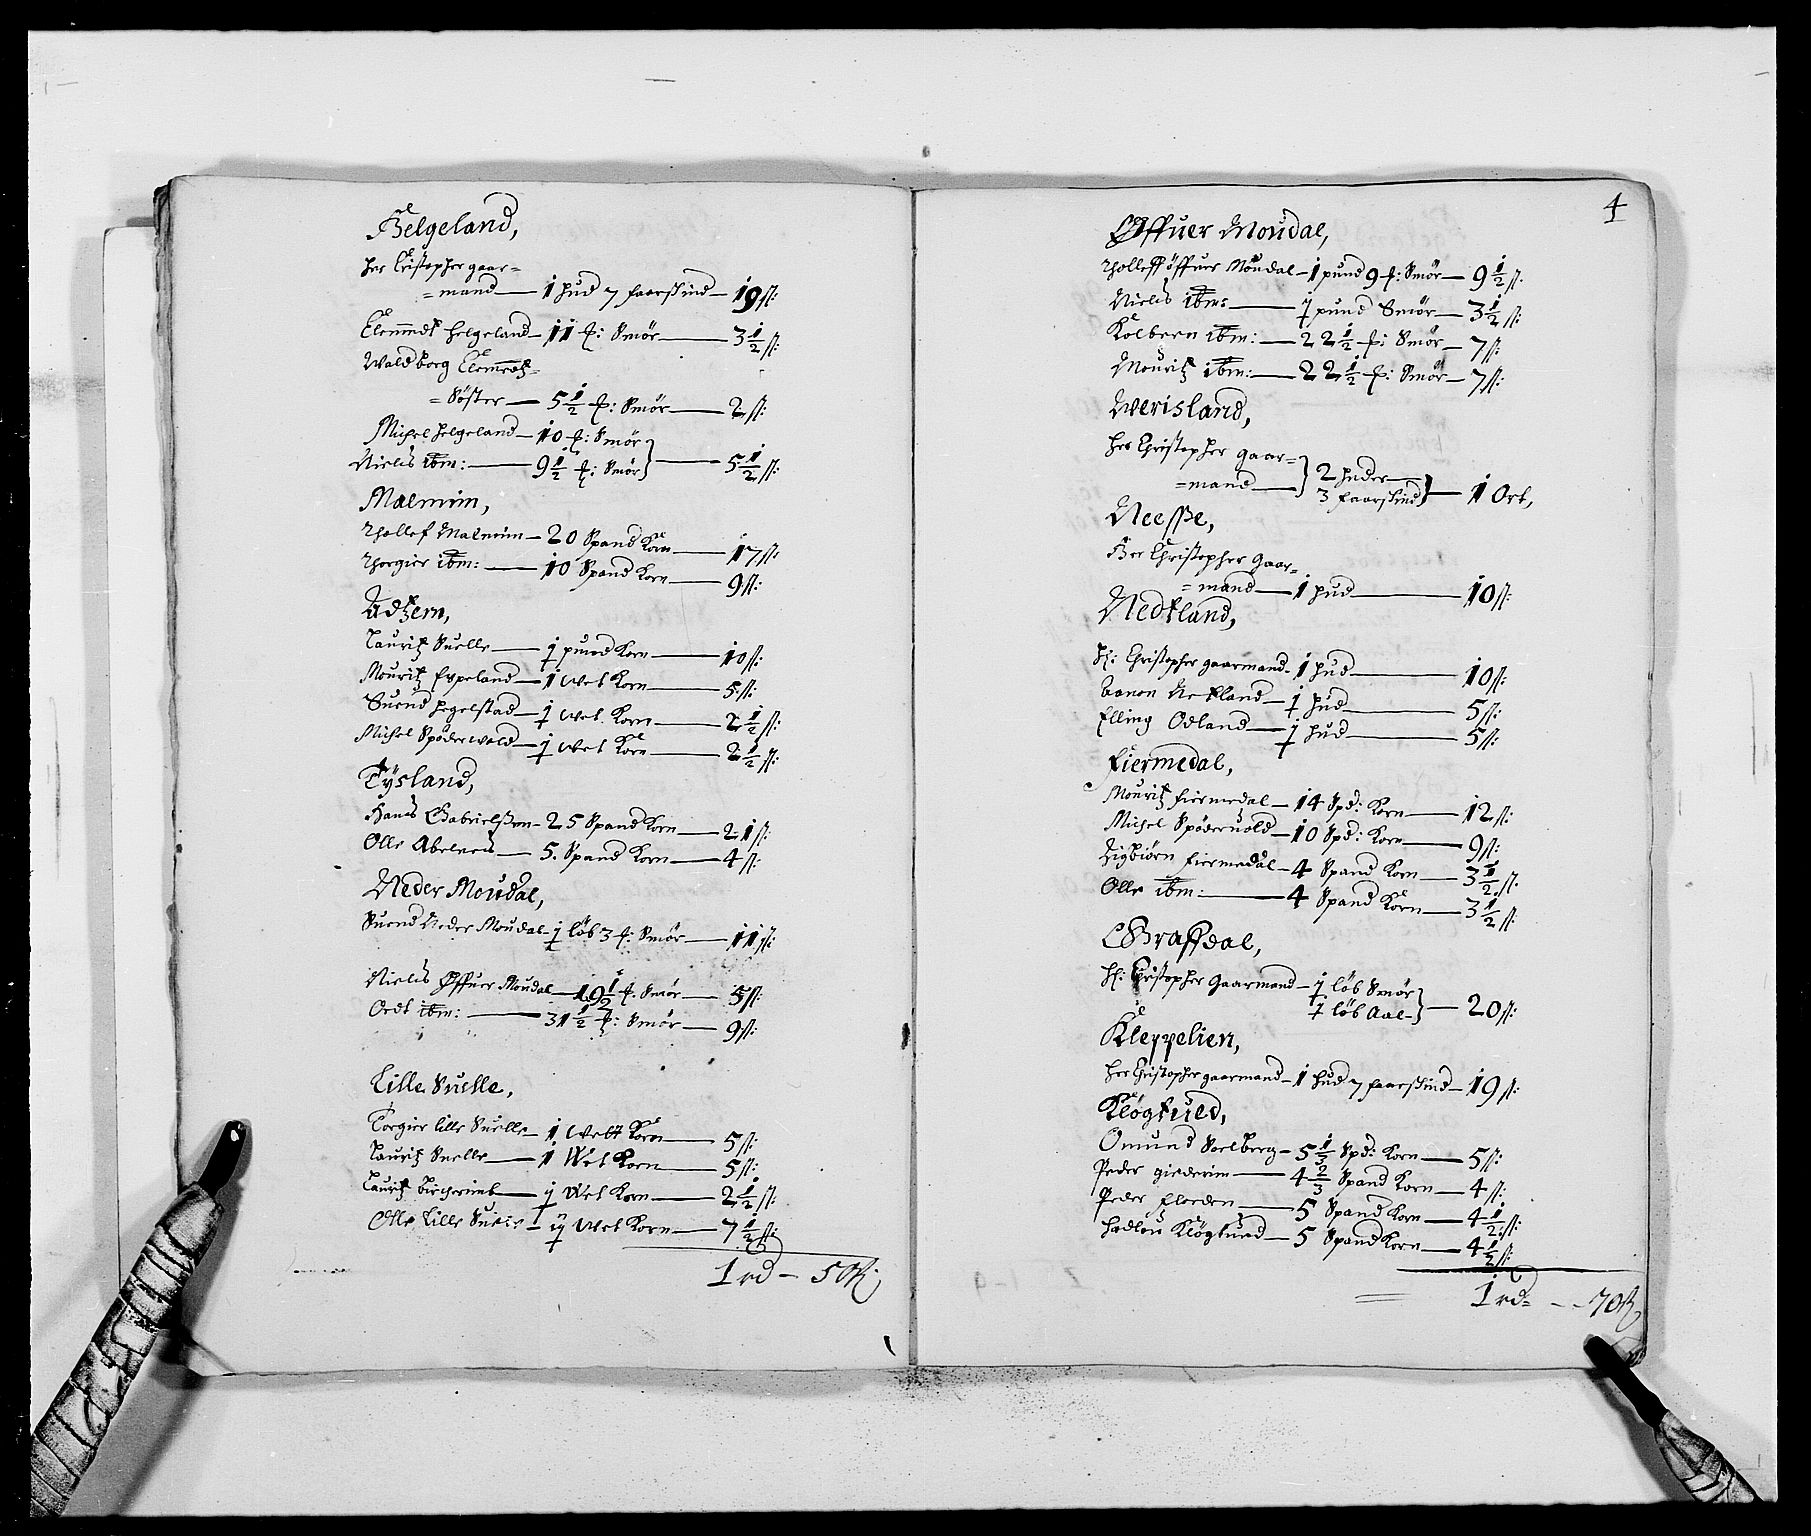 Helgeland,
Her Cristopher gaar=
=mand — 1 hud 7 faarskind — 19 ß:
Clemmet Helgeland — 11 ℔: Smör — 3 1/2 ß:
Waldborg Clemetz=
=Söster — 5 1/2 ℔: Smör — 2 ß:
Michel Helgeland — 10 ℔: Smör
Nielis ibm: — 9 1/2 ℔: Smör } — 5 1/2 ß:
Malmim,
Thollef Malmim — 20 Spand Korn — 17 ß:
Thorgier ibm: — 10 Spand Korn — 9 ß:
Udtzem,
Lauritz Suelle — ɉ pund Korn — 10 ß:
Mouritz Eppeland — 1 Wet Korn — 5 ß:
Suend Hegelstad — ɉ Wet Korn — 2 1/2 ß:
Michel Spöderwold — ɉ Wet Korn — 2 1/2 ß:
Tÿsland,
Hans Gabrielsøn — 25 Spand Korn — 21 ß:
Olle Abelnes — 5 Spand Korn — 4 ß:
Neder Moudal,
Suend Neder Moudal — ɉ löb 3 ℔: Smör — 11 ß:
Nielis Øffuer Moudal — 19 1/2 ℔: Smör — 5 ß:
Ordt ibm: — 31 1/2 ℔: Smör — 9 ß:
Lille Suelle,
Torgier lille Suelle — 1 Wett Korn — 5 ß:
Lauritz Suelle — 1 Wet Korn — 5 ß:
Lauritz Birchereimb — ɉ Wet Korn — 2 1/2 ß:
Olle Lille Suelle — iɉ Wet Korn — 7 1/2 ß:
1 rd — 50 ß
4
Øffuer Moudal,
Tholleff öffuer Moudal — 1 pund 9 ℔: Smör — 9 1/2 ß:
Nielis ibm: — ɉ pund Smör — 3 1/2 ß:
Kolbern ibm: — 22 1/2 ℔: Smör — 7 ß:
Mouritz ibm: — 22 1/2 ℔: Smör — 7 ß:
Werisland,
Her Christopher gaar=
=mand — } 2 huder
3 faarskind } — 1 Ort,
Neesse,
Her Christopher Gaar=
=mand — 1 hud — 10 ß:
Nedtland,
Hr: Christopher gaarmand — 1 hud — 10 ß:
Aanon Netland — ɉ hud — 5 ß:
Elling Odland — ɉ hud — 5 ß:
Fiermedal,
Mouritz fiermedal — 14 Spd: Korn — 12 ß:
Michel Spöderuold — 10 Spd: Korn — 9 ß:
Sigbiörn fiermedal — 4 Spand Korn — 3 1/2 ß:
Olle ibm: — 4 Spand Korn — 3 1/2 ß:
Graffdal,
Hr: Christopher Gaarmand — ɉ löb Smör
ɉ löb Aal } — 20 ß:
Kleppelien,
Her Christopher gaarmand — 1 hud 7 faarskind — 19 ß:
Klögtued,
Omund Soelberg — 5 1/3 Spd: Korn — 5 ß:
Peder giederim — 4 2/3 Spand Korn — 4 ß:
Peder Floeden — 5 Spand Korn — 4 1/2 ß:
Hadlou Klögtued — 5 Spand Korn — 4 1/2 ß:
1 rd: — 70 ß